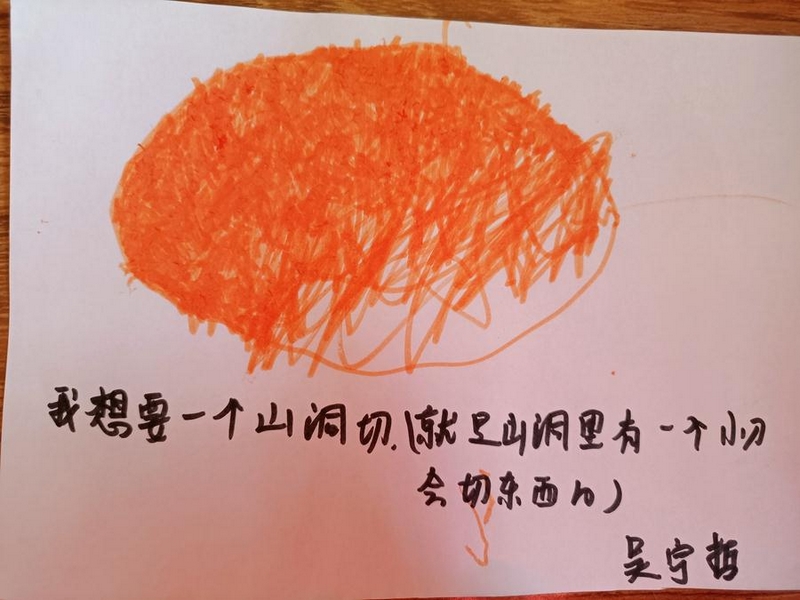 我想要一个山洞切.(就是山洞里有一个小刀
会切东西的)
吴宁哲